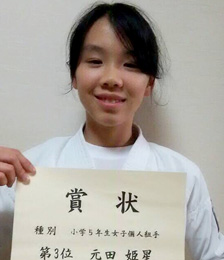 賞状
種別 小学5年生女子個人組手
第3位 元田 姫星